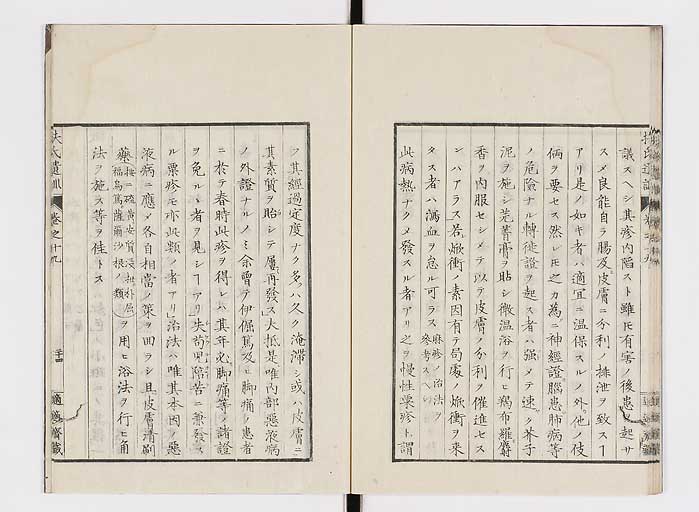 議スヘシ其疹内陥スト雖モ有害ノ後患ヲ起サ
スメ良能自ラ腸及皮膚ニ分利ノ排泄ヲ致スヿ
アリ是ノ如キ者ハ適宜ニ温保スルノ外他ノ伎
倆ヲ要セス然レモ之カ為ニ神經證腦患肺病等
ノ危險ナル轉徙證ヲ起ス者ハ強メテ速ク芥子
泥ヲ施シ芫菁膏ヲ貼シ微温浴ヲ行ヒ羯布羅麝
香ヲ内服セシメテ以テ皮膚ノ分利ヲ催進セス
ンハアラス若焮衝ノ素因有テ局處ノ焮衝ヲ来
タス者ハ瀉血ヲ怠ル可ラス
麻疹ノ治法ヲ
参考スヘシ
此病熱ナクメ發スル者アリ之ヲ慢性粟疹ト謂
フ其經過定度ナク多ハ久ク淹滞シ或ハ皮膚ニ
其素質ヲ貽シテ屢再發ス大抵是唯内部惡液病
ノ外證ナルノミ余曽テ伊偏篤及ヒ脚痛ノ患者
ニ於テ春時此疹ヲ得レハ其年必脚痛等ノ諸證
ヲ免ルヽ者ヲ見シヿアリ失苟児陪苦ニ兼發ス
ル粟疹モ亦此類ノ者アリ治法ハ唯其本因ノ惡
液病ニ應メ各自相當ノ策ヲ回ラシ且皮膚清刷
藥
福烏篤薩爾沙根ノ類
ヲ用ヒ浴法ヲ行ヒ角
法ヲ施ス等ヲ佳トス
扶氏遺訓
巻之十九
二十四
適適齋藏